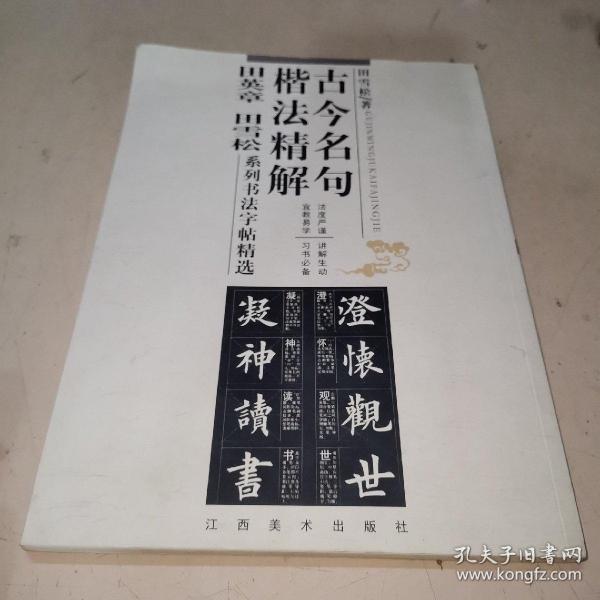 田雪松/著·GUJINMINGJUKAIFAJINGJIE
古今名句
楷法精解
法度严谨 讲解生动
宜教易学 习书必备
田英章 田雪松系列书法字帖精选
澄懷觀世
澄怀观世
凝神讀書
凝神读书
江西美术出版社
孔夫子旧书网
www.kongfz.com